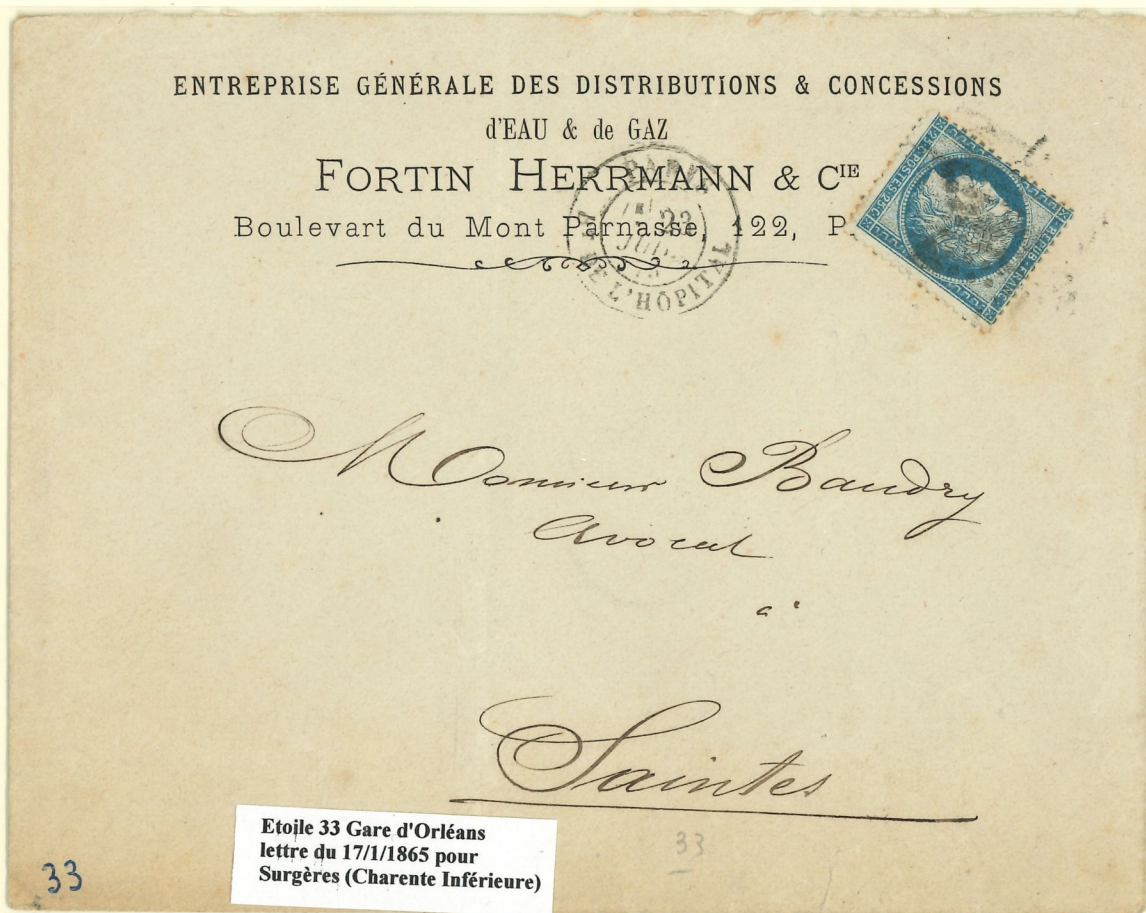 ENTREPRISE GÉNÉRALE DES DISTRIBUTIONS & CONCESSIONS
d'EAU & de GAZ
FORTIN HERRMANN & CIE
Boulevart du Mont Parnasse, 122, P
PARIS
23
DE L'HÔPITAL
25 C. POSTES 25 C.
REPUB. FRANC.
Monsieur Baudry
Avocat
à
Saintes
Etoile 33 Gare d'Orléans
lettre du 17/1/1865 pour
Surgères (Charente Inférieure)
33
33